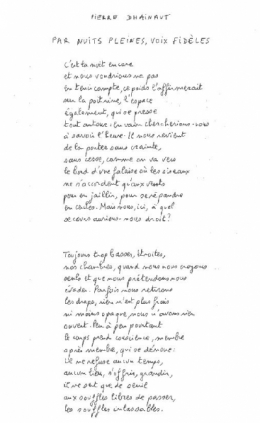 PIERRE DHAINAUT
PAR NUITS PLEINES, VOIX FIDÈLES
C'est la nuit encore
et nous voudrions ne pas
en tenir compte, ce poids s'affirmerait
sur la poitrine, l'espace
également, qui se presse
tout autour. En vain chercherions-nous
à savoir l'heure. Il nous revient
de la porter sans crainte,
sans cesse, comme on va vers
le bord d'une falaise où les oiseaux
ne s'accordent qu'aux vents
pour en jaillir, pour se répandre
en cercles. Mais nous, ici, à quel
secours aurions-nous droit ?
Toujours trop basses, étroites,
nos chambres, quand nous nous croyons
seuls et que nous prétendons nous
évader. Parfois nous retirons
les draps, rien n'est plus frais
ni moins opaque, nous n'avons rien
ouvert. Peu à peu pourtant
le corps prend conscience, membre
après membre, qui se dénoue :
il ne refuse aucun temps,
aucun lieu, s'offrir, grandir,
il ne sert que de seuil
aux souffles libres de passer,
les souffles inlassables.